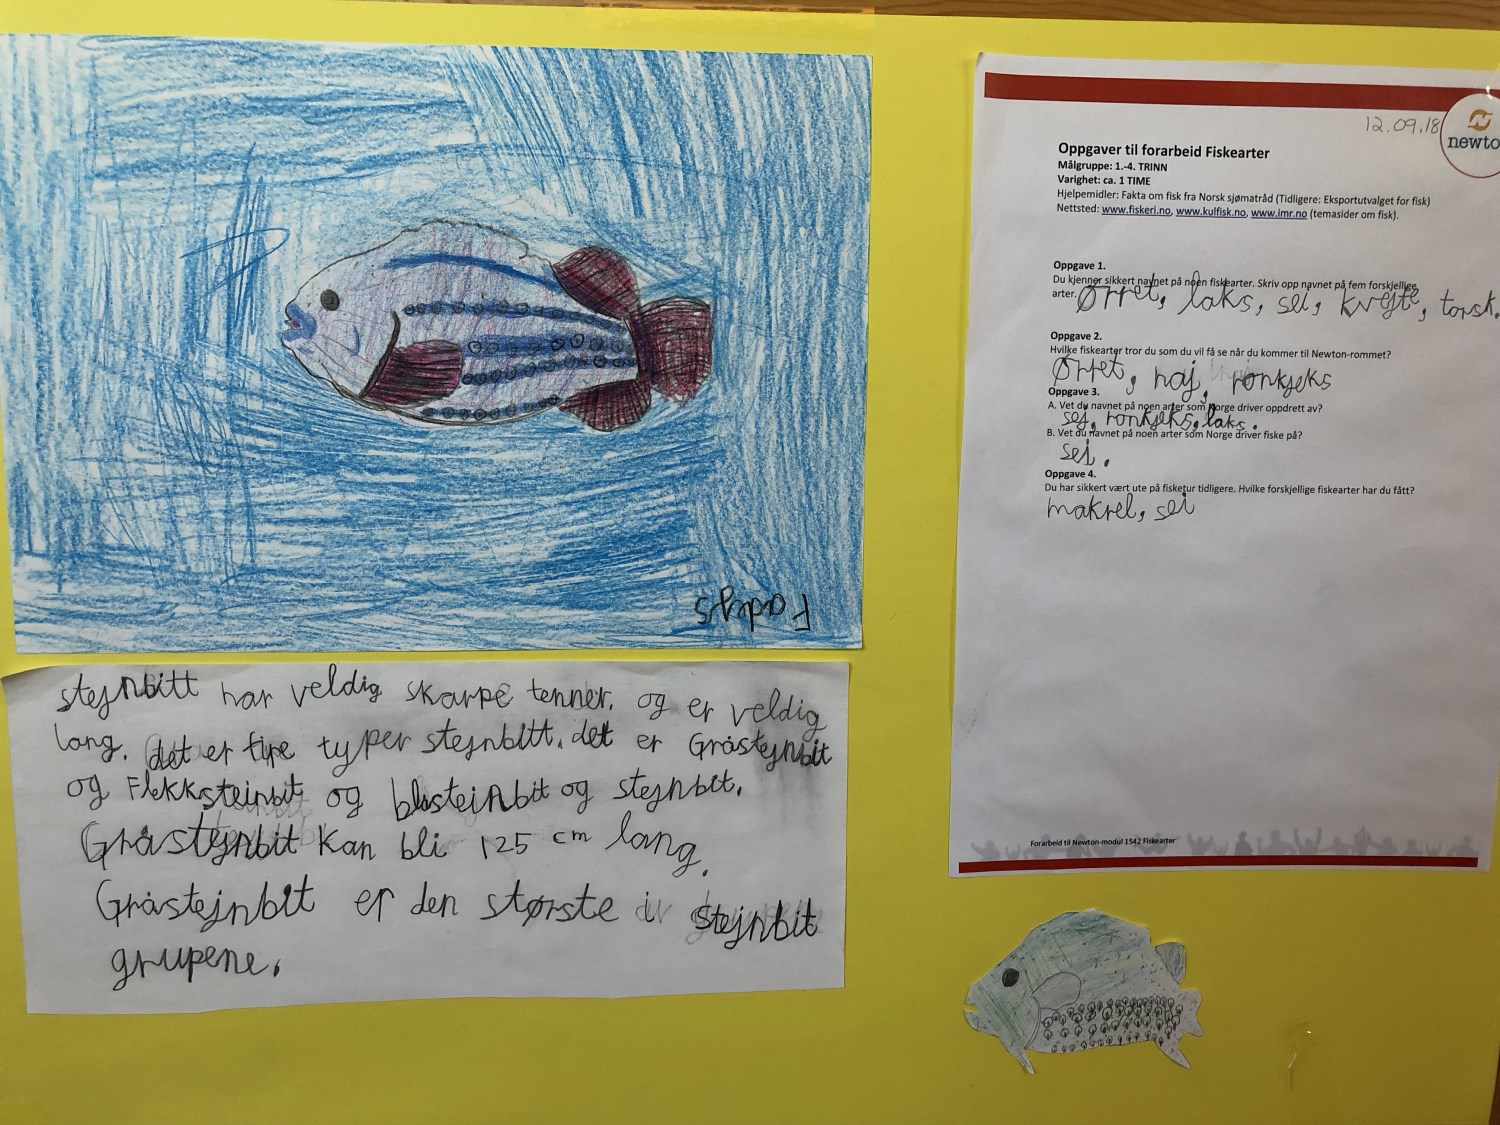 Fadrys
stejnbitt har veldig skarpe tenner. og er veldig
lang. det er fire typer stejnbitt. det er Gråstejnbit
og Flekksteinbit og blåsteinbit og stejnbit.
Gråstejnbit kan bli 125 cm lang.
Gråstejnbit er den største i stejnbit
grupene.
12.09.18
newto
Oppgaver til forarbeid Fiskearter
Målgruppe: 1.-4. TRINN
Varighet: ca. 1 TIME
Hjelpemidler: Fakta om fisk fra Norsk sjømatråd (Tidligere: Eksportutvalget for fisk)
Nettsted: www.fiskeri.no, www.kulfisk.no, www.imr.no (temasider om fisk).
Oppgave 1.
Du kjenner sikkert navnet på noen fiskearter. Skriv opp navnet på fem forskjellige
arter. Ørret, laks, sei, kvejte, torsk.
Oppgave 2.
Hvilke fiskearter tror du som du vil få se når du kommer til Newton-rommet?
Ørret, haj, ronkjeks
Oppgave 3.
A. Vet du navnet på noen arter som Norge driver oppdrett av?
sej, ronkjeks, laks.
B. Vet du navnet på noen arter som Norge driver fiske på?
sei.
Oppgave 4.
Du har sikkert vært ute på fisketur tidligere. Hvilke forskjellige fiskearter har du fått?
makrel, sei
Forarbeid til Newton-modul 1542 Fiskearter